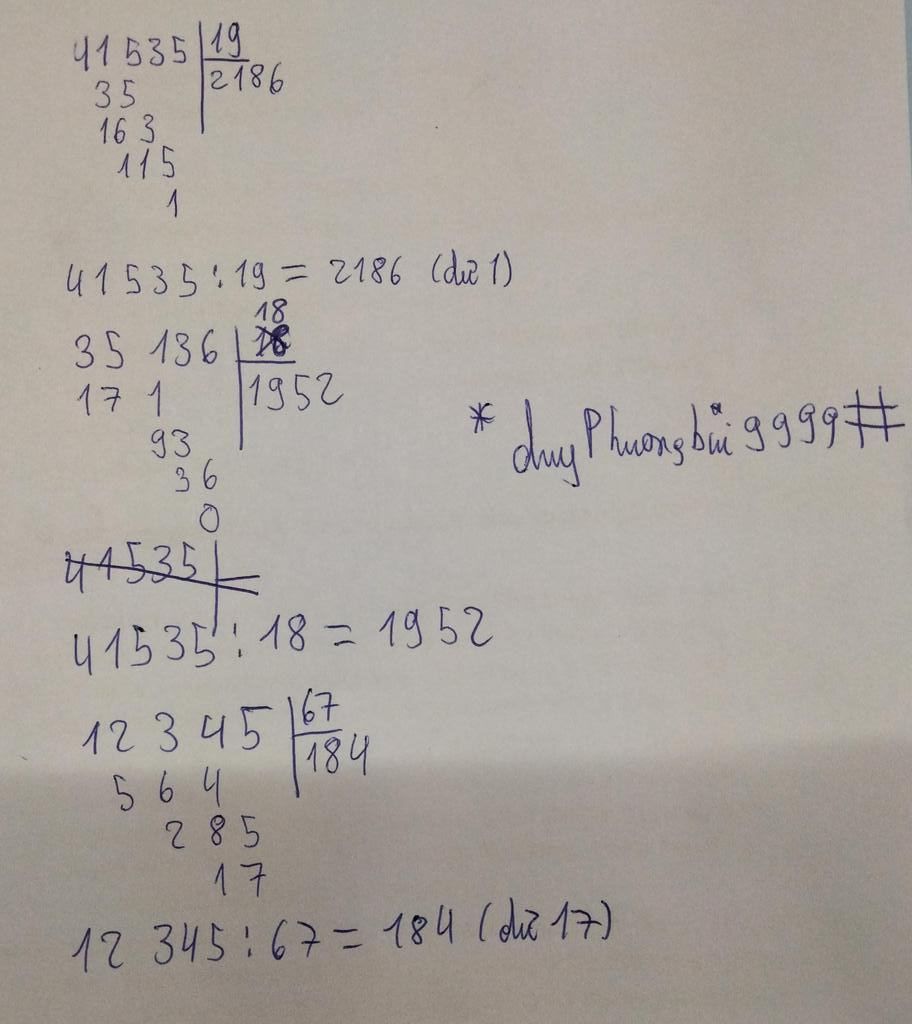 41535 19
35 2186
163
115
1
41535 : 19 = 2186 (dư 1)
18
35 136
17 1 1952
93
36
0
* duy Phuongbùi 9999#
41535
41535 : 18 = 1952
12 345 67
564 184
285
17
12 345 : 67 = 184 (dư 17)